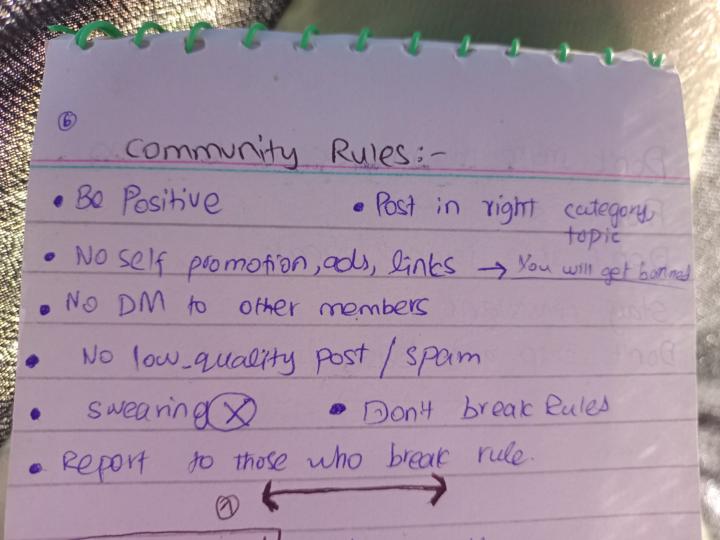 ⑥
Community Rules:-
• Be Positive • Post in right category topic
• No self promotion, ads, links → You will get banned
• No DM to other members
• No low-quality post / spam
• swearing ⓧ • Don't break Rules
• Report to those who break rule.
⑦